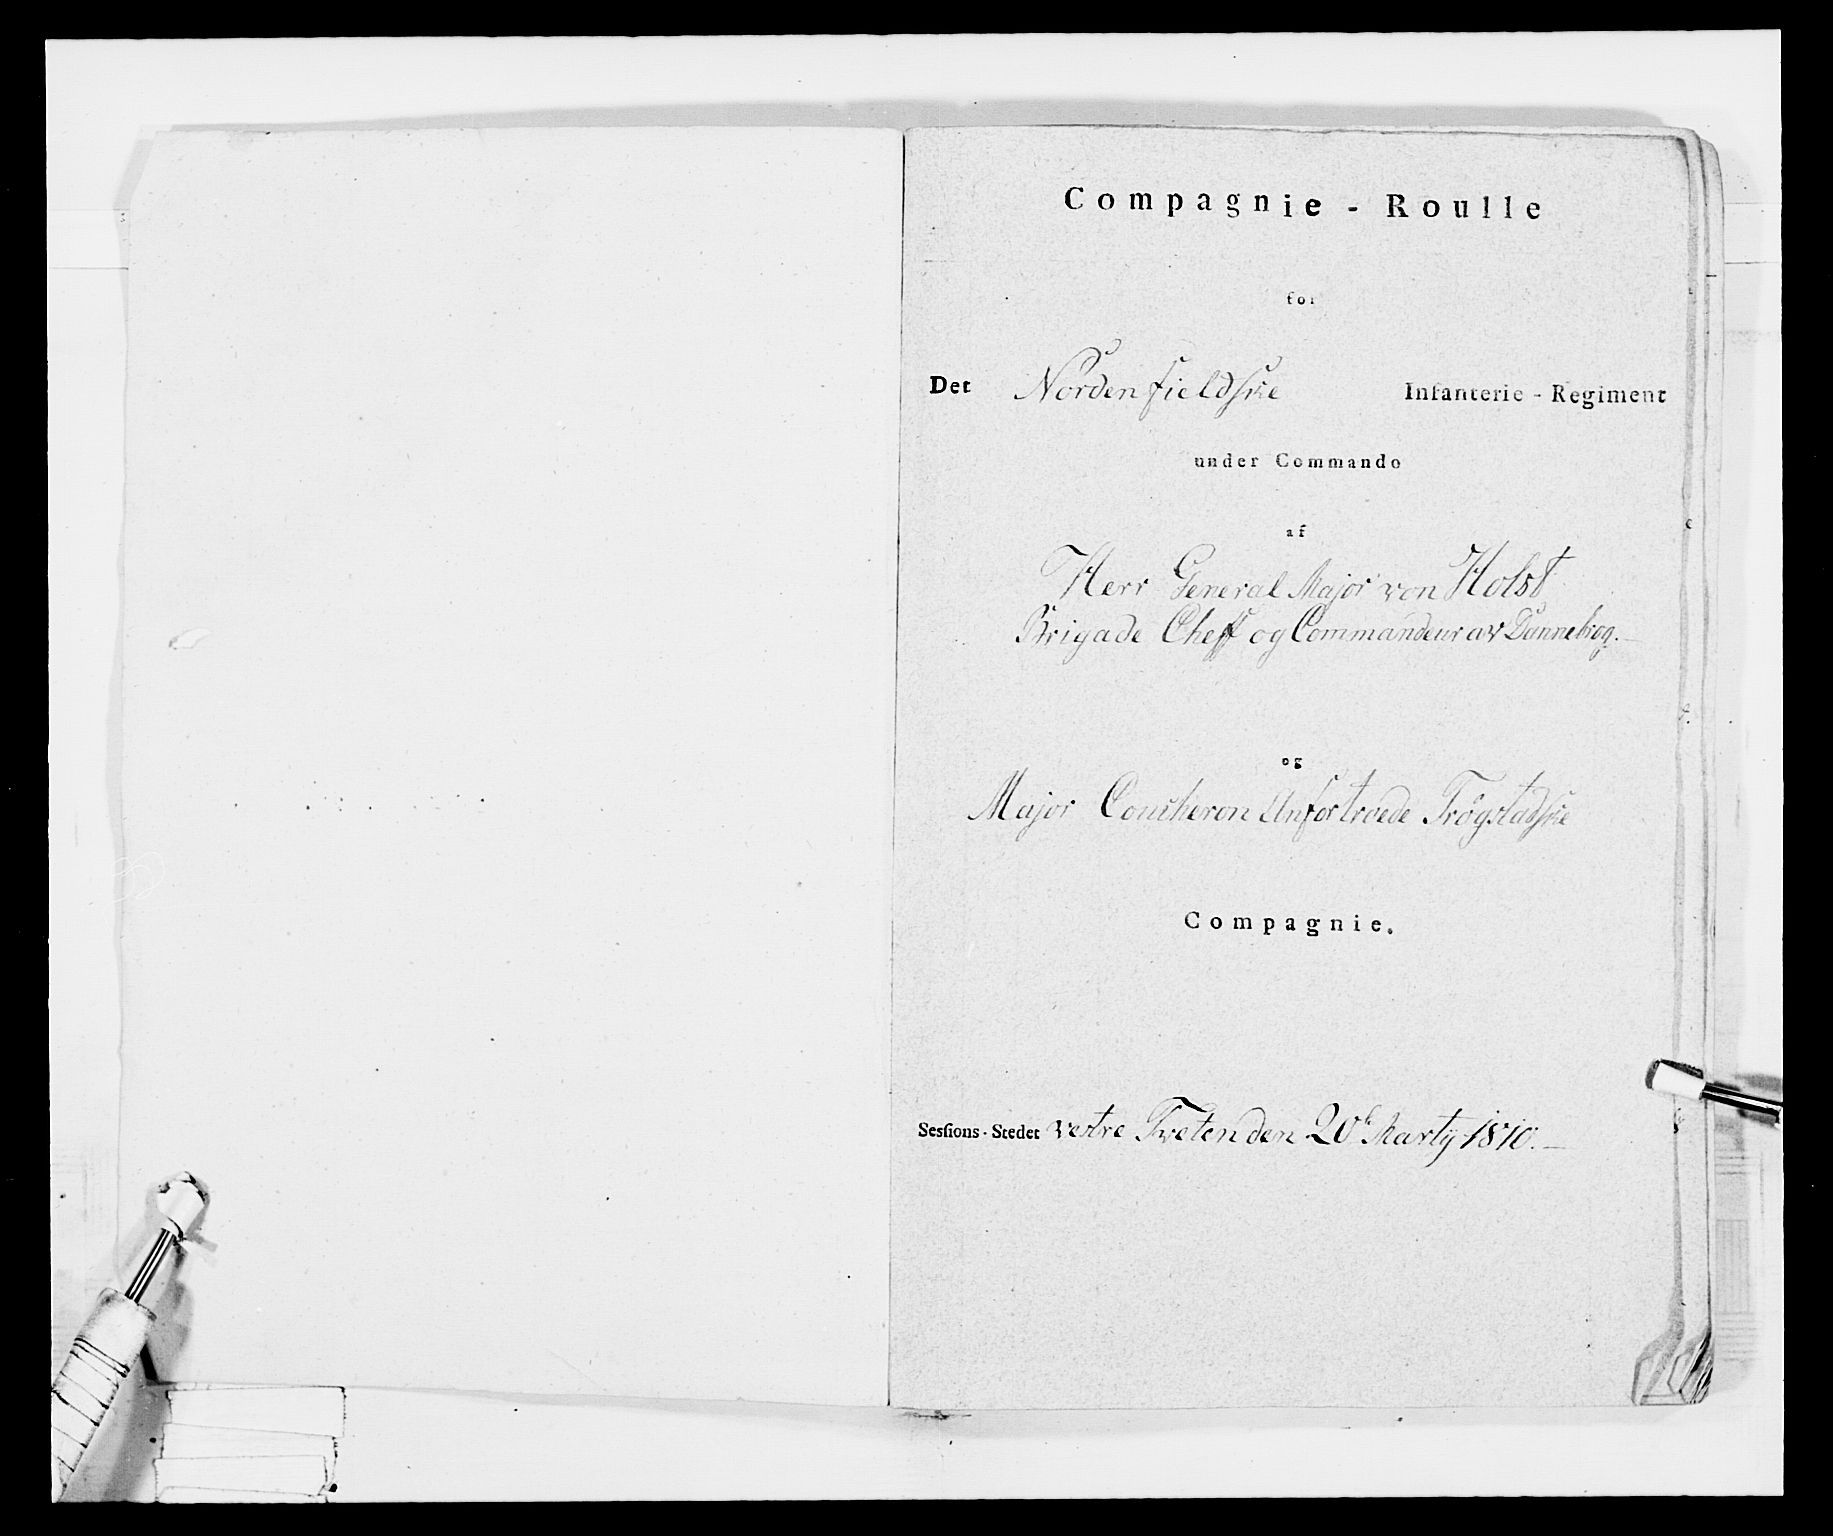 Compagnie - Roulle
for
Det Nordenfieldske Infanterie - Regiment
under Commando
af
Herr General Major von Holst
Brigade Cheff og Commandeur av Dannebrog.
og
Major Coucheron Anfortroede Trögstadske
Compagnie.
Sessions - Stedet vestre Tveten den 20de Marty 1810.